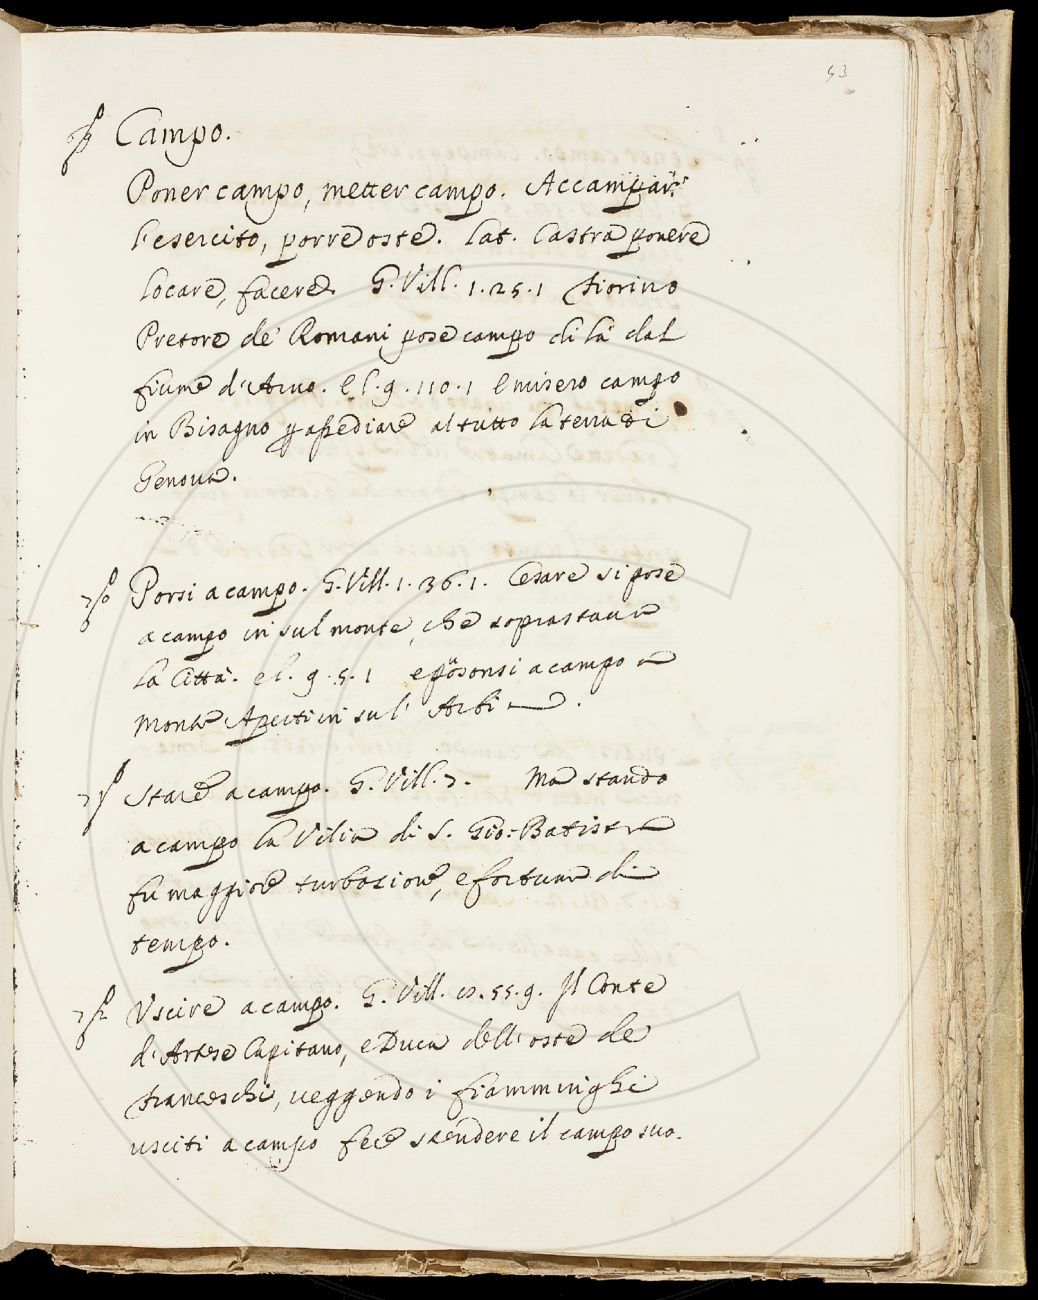 53
Campo.
Poner campo, metter campo. Accampar
l'esercito, porre oste. Lat. Castra ponere
locare, facere. G. Vill. 1.25.1 Fiorino
Pretore de' Romani pose campo di là dal
fiume d'Arno. e l. 9. 110. 1 e misero campo
in Bisagno p assediare al tutto la terra di
Genova.
Porsi a campo. G. Vill. 1. 36. 1. Cesare si pose
a campo in sul monte, che soprastava
la Città. e l. 9. 5. 1 e posonsi a campo a
Monte Aperti in sul' Arbia.
Stare a campo. G. Vill. 7. Ma stando
a campo la Vilia di S. Gio: Batista
fu maggiore turbazione, e fortuna di
tempo.
Uscire a campo. G. Vill. 55. 9. Il Conte
d'Artese Capitano, e Duca dell'oste de
franceschi, veggendo i fiamminghi
usciti a campo fece stendere il campo suo.